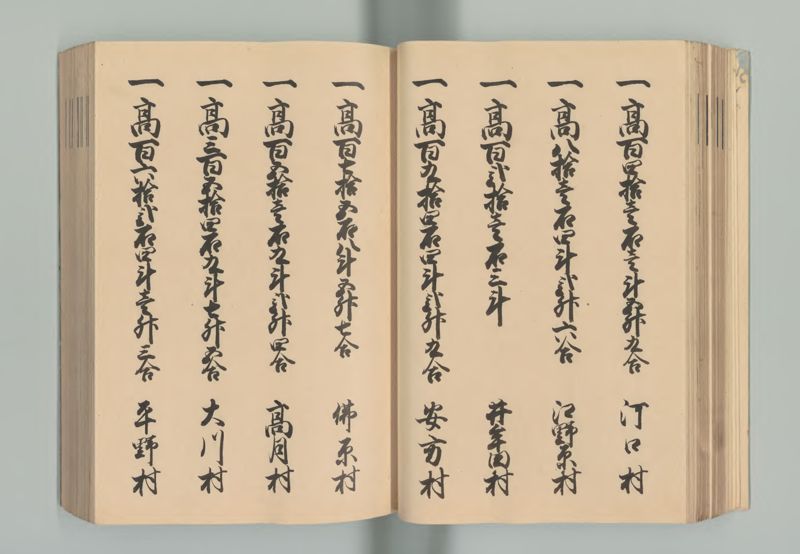 一高百四拾壱石壱斗五升九合 河口村
一高八拾壱石四斗弐升六合 江野原村
一高百弐拾壱石三斗 井牟田村
一高百九拾四石四斗弐升九合 安方村
一高百七拾五石八斗五升七合 佛原村
一高百五拾壱石九斗弐升四合 高月村
一高三百五拾四石九斗七升五合 大川村
一高百六拾弐石四斗壱升三合 平野村